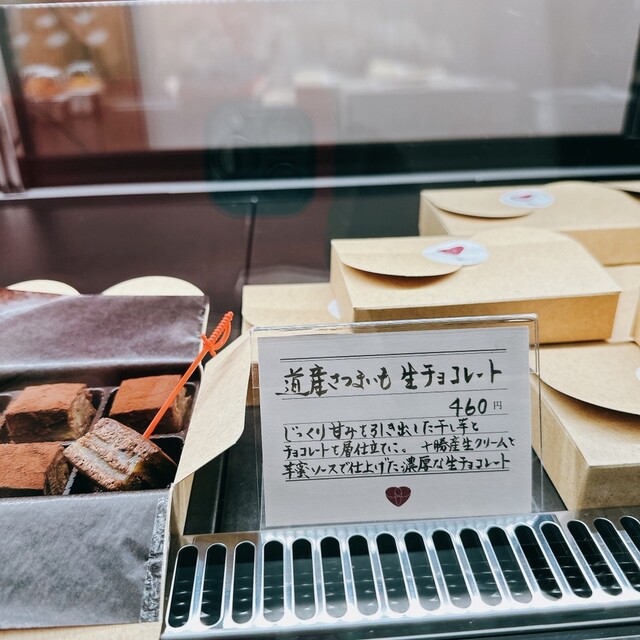 道産さつまいも 生チョコレート
460円
じっくり甘みを引き出した干し芋と
チョコレートを層仕立てに。 十勝産生クリームと
芋蜜ソースで仕上げた濃厚な生チョコレート